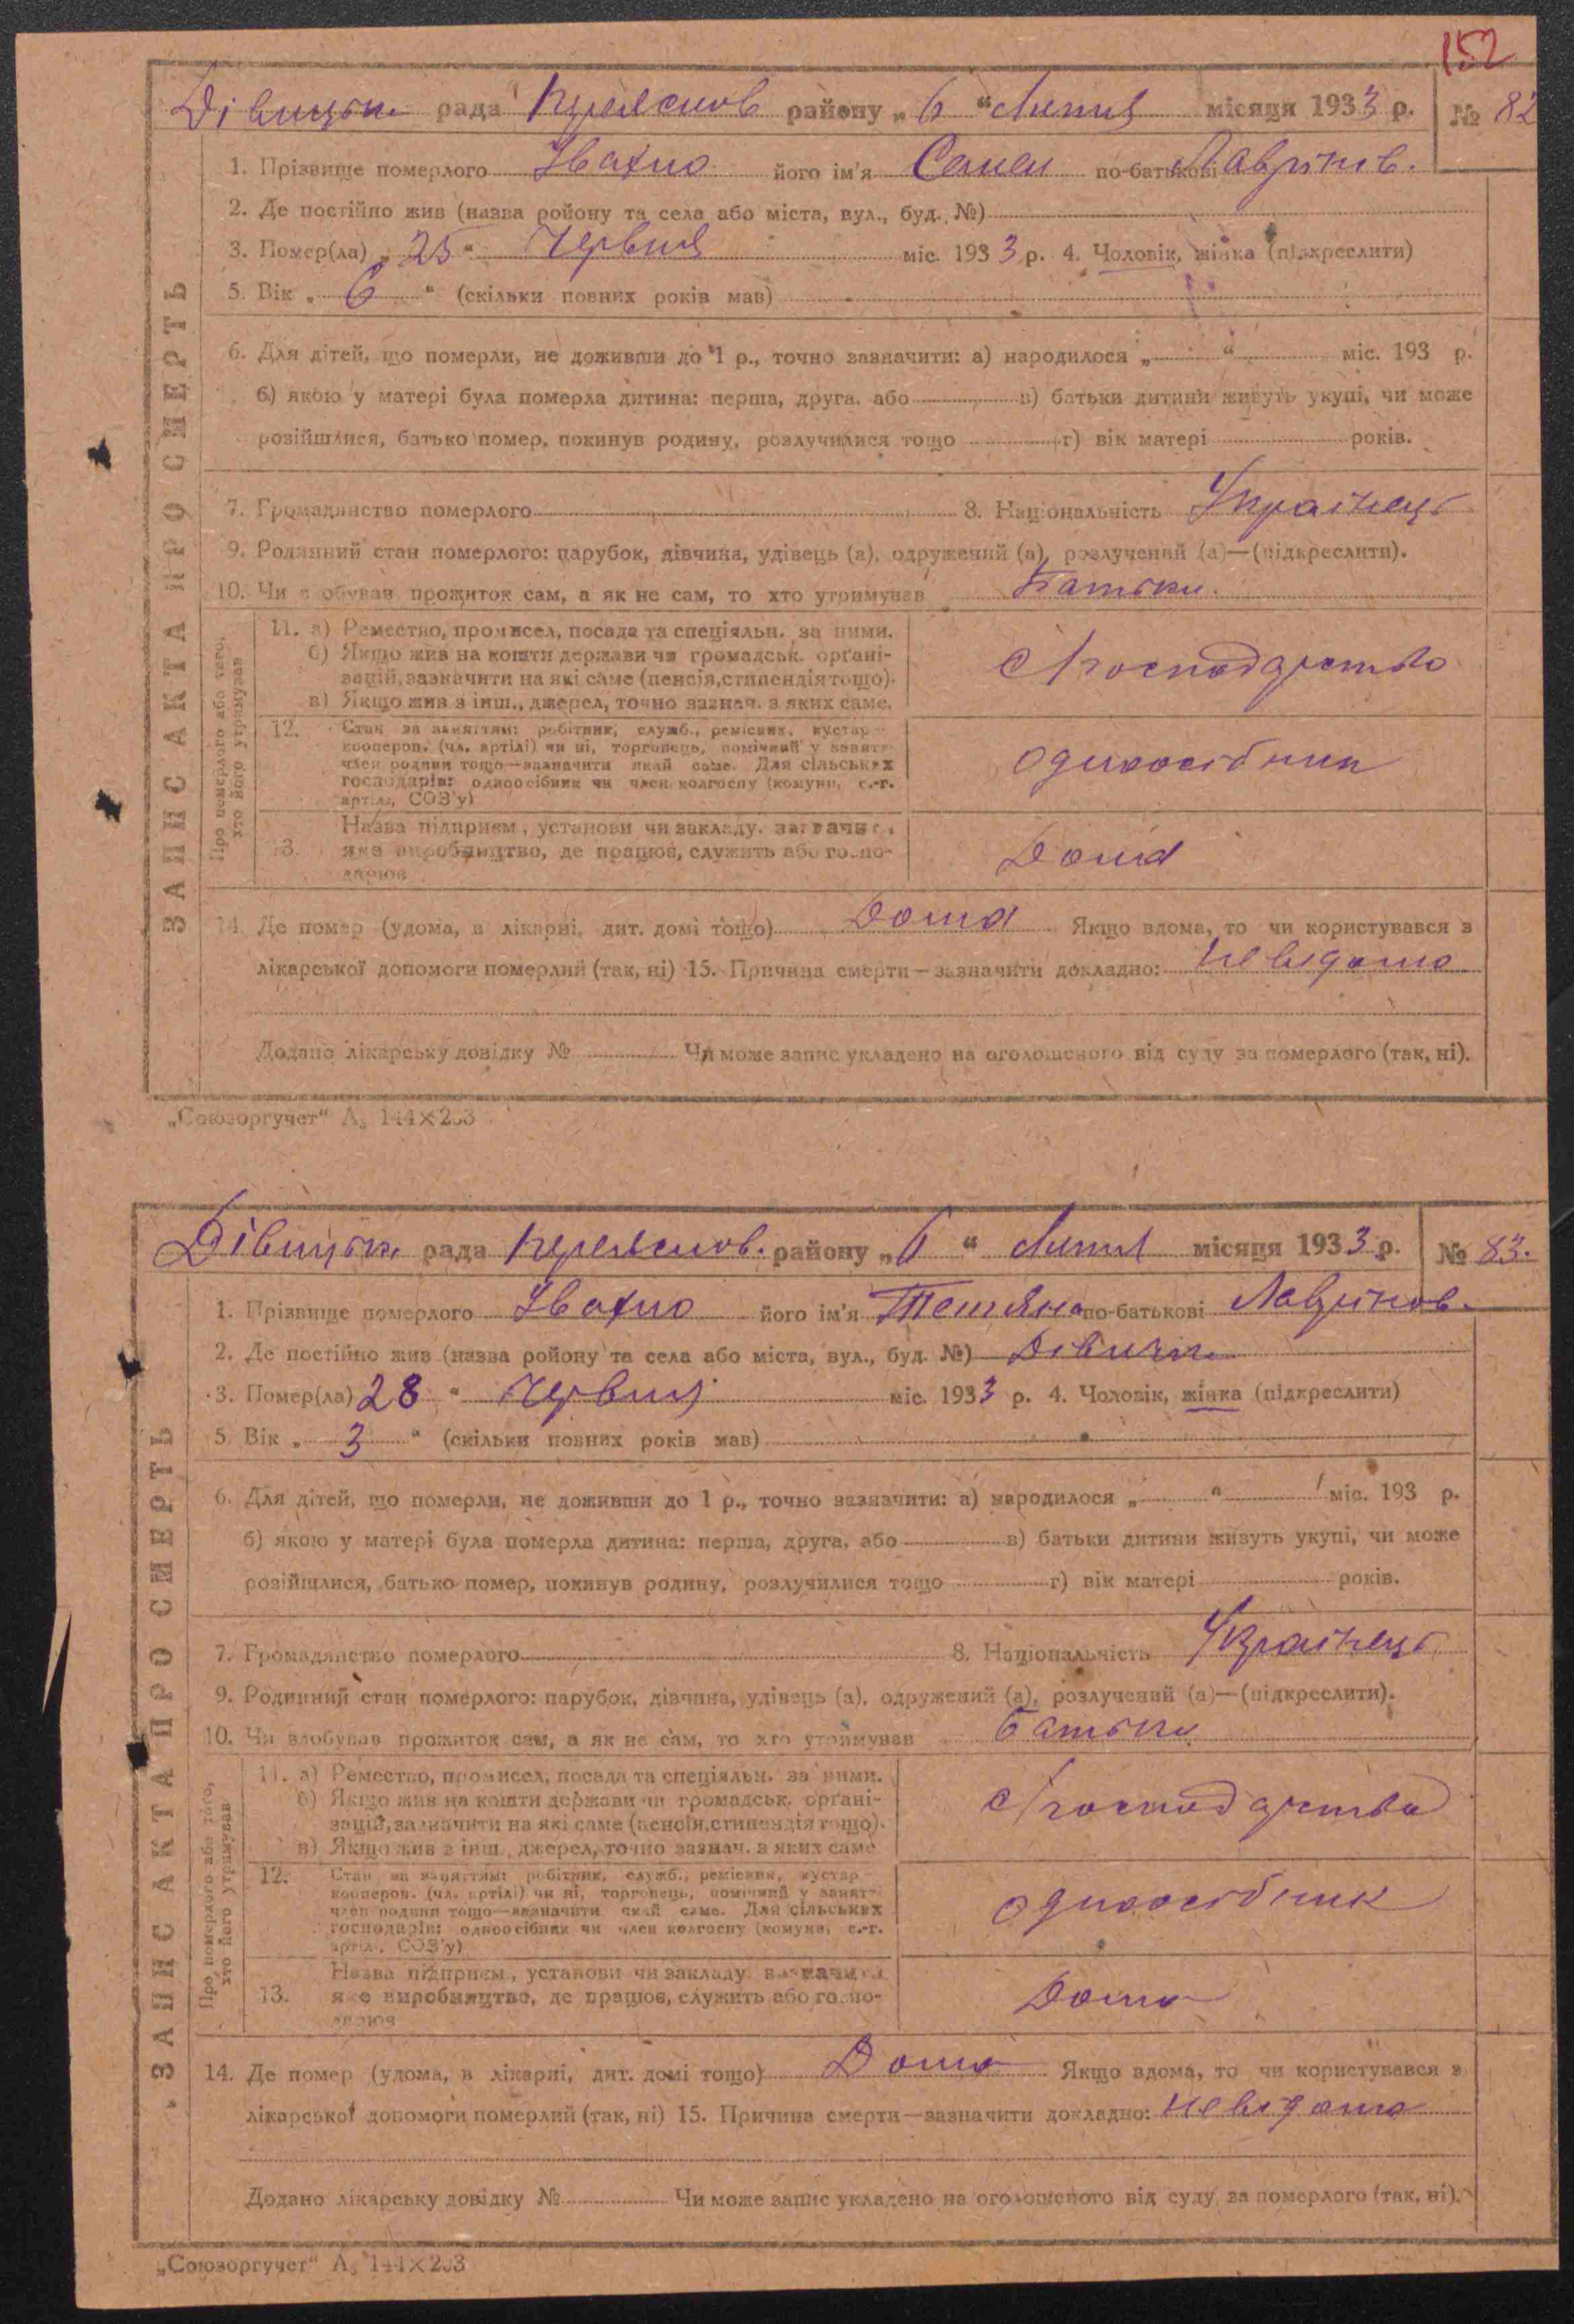 152
Дівицьк. рада Переяслов району „ 6 “ Липня місяця 1933 р. № 82
1. Прізвище померлого Івахно його ім'я Семен по-батькові Лаврінов.
2. Де постійно жив (назва ройону та села або міста, вул., буд. №)
3. Помер(ла) „ 25 “ Червня міс. 1933 р. 4. Чоловік, жінка (підкреслити)
5. Вік „ 6 “ (скільки повних років мав)
6. Для дітей, що померли, не доживши до 1 р., точно зазначити: а) народилося „ “ міс. 193 р.
б) якою у матері була померла дитина: перша, друга, або в) батьки дитини живуть укупі, чи може
розійшлися, батько помер, покинув родину, розлучилися тощо г) вік матері років.
7. Громадянство померлого 8. Національність Українець
9. Родинний стан померлого: парубок, дівчина, удівець (а), одружений (а), розлучений (а)—(підкреслити).
10. Чи здобував прожиток сам, а як не сам, то хто утримував Батьки.
ЗАПИС АКТА ПРО СМЕРТЬ
Про померлого або того,
хто його утримував
11. а) Ремество, промисел, посада та спеціяльн. за ними.
б) Якщо жив на кошти держави чи громадськ. орґані-
зацій, зазначити на які саме (пенсія, стипендія тощо).
в) Якщо жив з інш., джерел, точно зазнач. з яких саме.
Господарство
12. Стан за заняттям: робітник, служб., ремісник, кустар
кооперов. (чл. артілі) чи ні, торговець, помічний у занят-
член родини тощо—зазначити який саме. Для сільських
господарів: одноосібник чи член колгоспу (комуни, с.-г.
артілі, СОЗ'у)
одноосібник
13. Назва підприєм., установи чи закладу, зазначити
яке виробництво, де працює, служить або госпо-
дарює
Дома
14. Де помер (удома, в лікарні, дит. домі тощо) Дома Якщо вдома, то чи користувався з
лікарської допомоги померлий (так, ні) 15. Причина смерти—зазначити докладно: невідома
Додано лікарську довідку № Чи може запис укладено на оголошеного від суду за померлого (так, ні).
„Союзоргучет“ А₅ 144×203
Дівицьк. рада Переяслов. району „ 6 “ Липня місяця 1933 р. № 83.
1. Прізвище померлого Івахно його ім'я Тетяна по-батькові Лаврінов.
2. Де постійно жив (назва ройону та села або міста, вул., буд. №) Дівички
3. Помер(ла) 28 “ Червня міс. 1933 р. 4. Чоловік, жінка (підкреслити)
5. Вік „ 3 “ (скільки повних років мав)
6. Для дітей, що померли, не доживши до 1 р., точно зазначити: а) народилося „ “ міс. 193 р.
б) якою у матері була померла дитина: перша, друга, або в) батьки дитини живуть укупі, чи може
розійшлися, батько помер, покинув родину, розлучилися тощо г) вік матері років.
7. Громадянство померлого 8. Національність Українець
9. Родинний стан померлого: парубок, дівчина, удівець (а), одружений (а), розлучений (а)—(підкреслити).
10. Чи здобував прожиток сам, а як не сам, то хто утримував Батьки
ЗАПИС АКТА ПРО СМЕРТЬ
Про померлого або того,
хто його утримував
11. а) Ремество, промисел, посада та спеціяльн. за ними.
б) Якщо жив на кошти держави чи громадськ. орґані-
зацій, зазначити на які саме (пенсія, стипендія тощо).
в) Якщо жив з інш., джерел, точно зазнач. з яких саме
Господарство
12. Стан за заняттям: робітник, служб., ремісник, кустар
кооперов. (чл. артілі) чи ні, торговець, помічний у занят-
член родини тощо—зазначити який саме. Для сільських
господарів: одноосібник чи член колгоспу (комуни, с.-г.
артілі, СОЗ'у)
одноосібник
13. Назва підприєм., установи чи закладу зазначити
яке виробництво, де працює, служить або госпо-
дарює
Дома
14. Де помер (удома, в лікарні, дит. домі тощо) Дома Якщо вдома, то чи користувався з
лікарської допомоги померлий (так, ні) 15. Причина смерти—зазначити докладно: невідома
Додано лікарську довідку № Чи може запис укладено на оголошеного від суду за померлого (так, ні).
„Союзоргучет“ А₅ 144×203